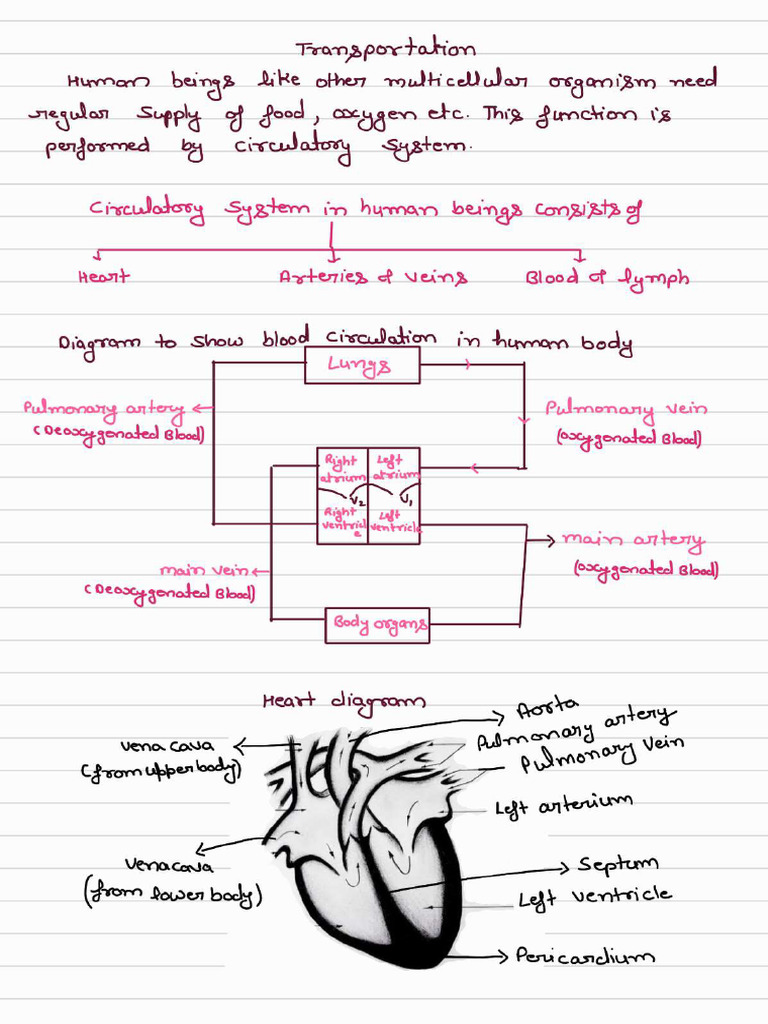 Transportation
Human beings like other multicellular organism need
regular supply of food, oxygen etc. This function is
performed by circulatory system.
Circulatory system in human beings consists of
Heart
Arteries & veins
Blood & lymph
Diagram to show blood circulation in human body
Lungs
Pulmonary artery
(Deoxygenated Blood)
Pulmonary vein
(oxygenated Blood)
Right atrium
Left atrium
V2
V1
Right ventricle
Left ventricle
main artery
(oxygenated Blood)
main vein
(Deoxygenated Blood)
Body organs
Heart diagram
Aorta
Pulmonary artery
Pulmonary vein
vena cava
(from upper body)
Left arterium
vena cava
(from lower body)
Septum
Left ventricle
Pericardium